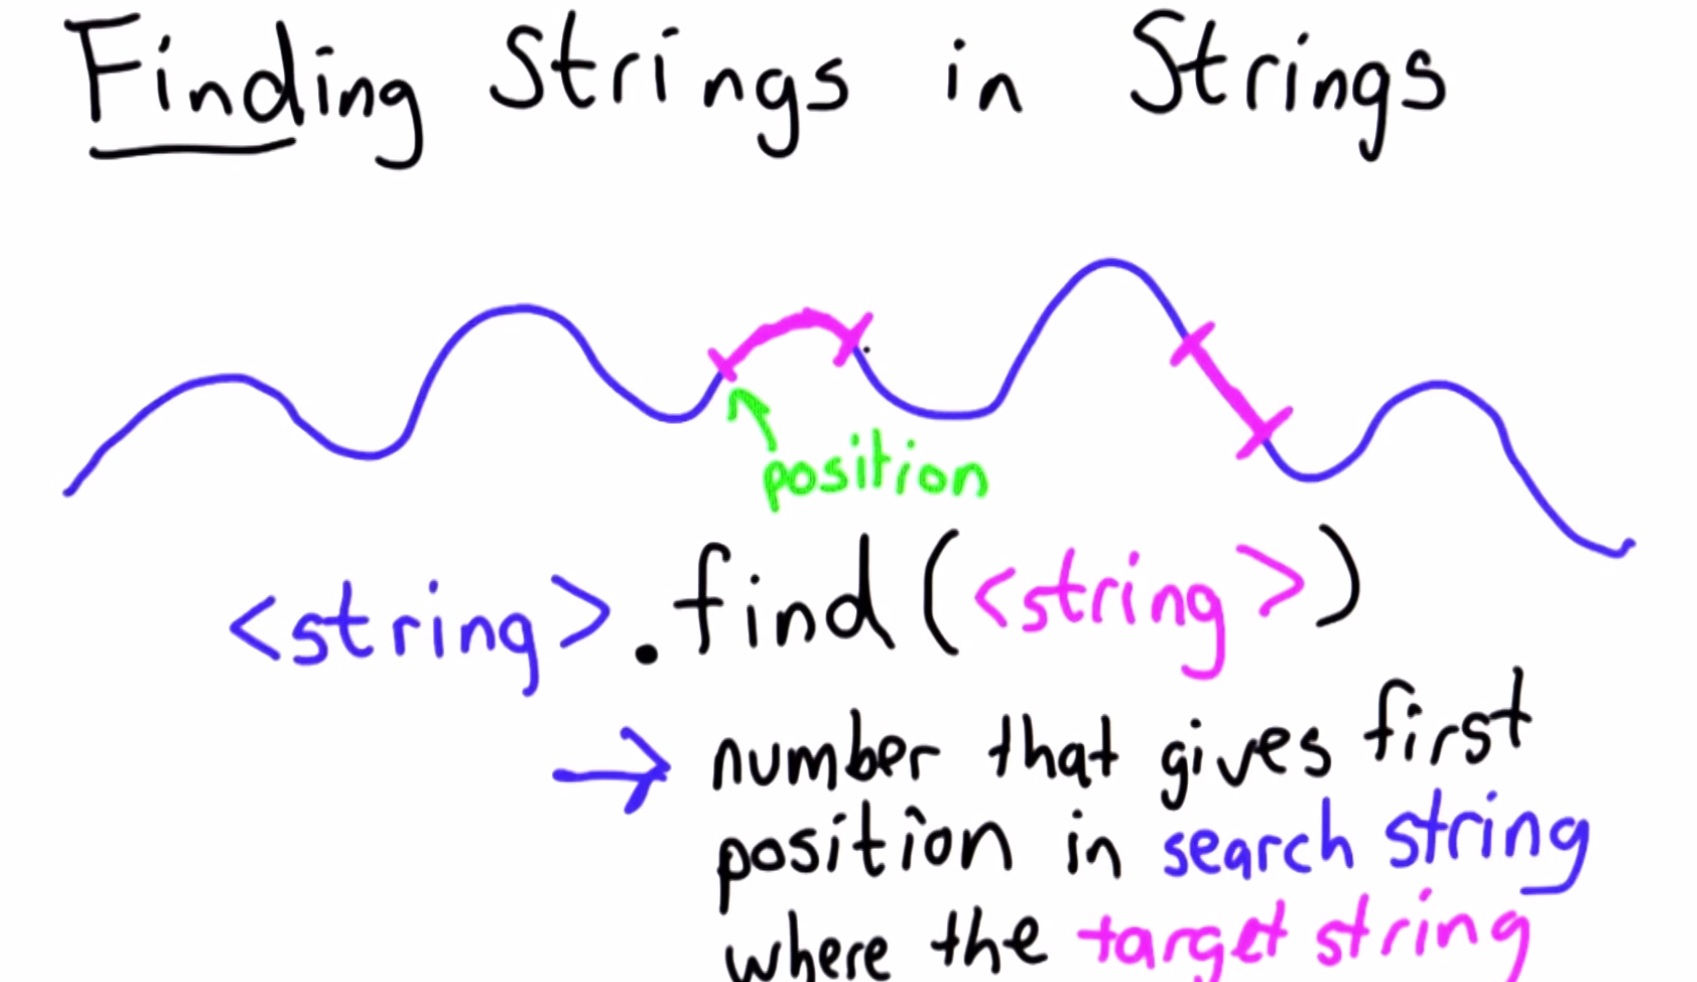 Finding Strings in Strings
position
<string>.find(<string>)
→ number that gives first
position in search string
where the target string